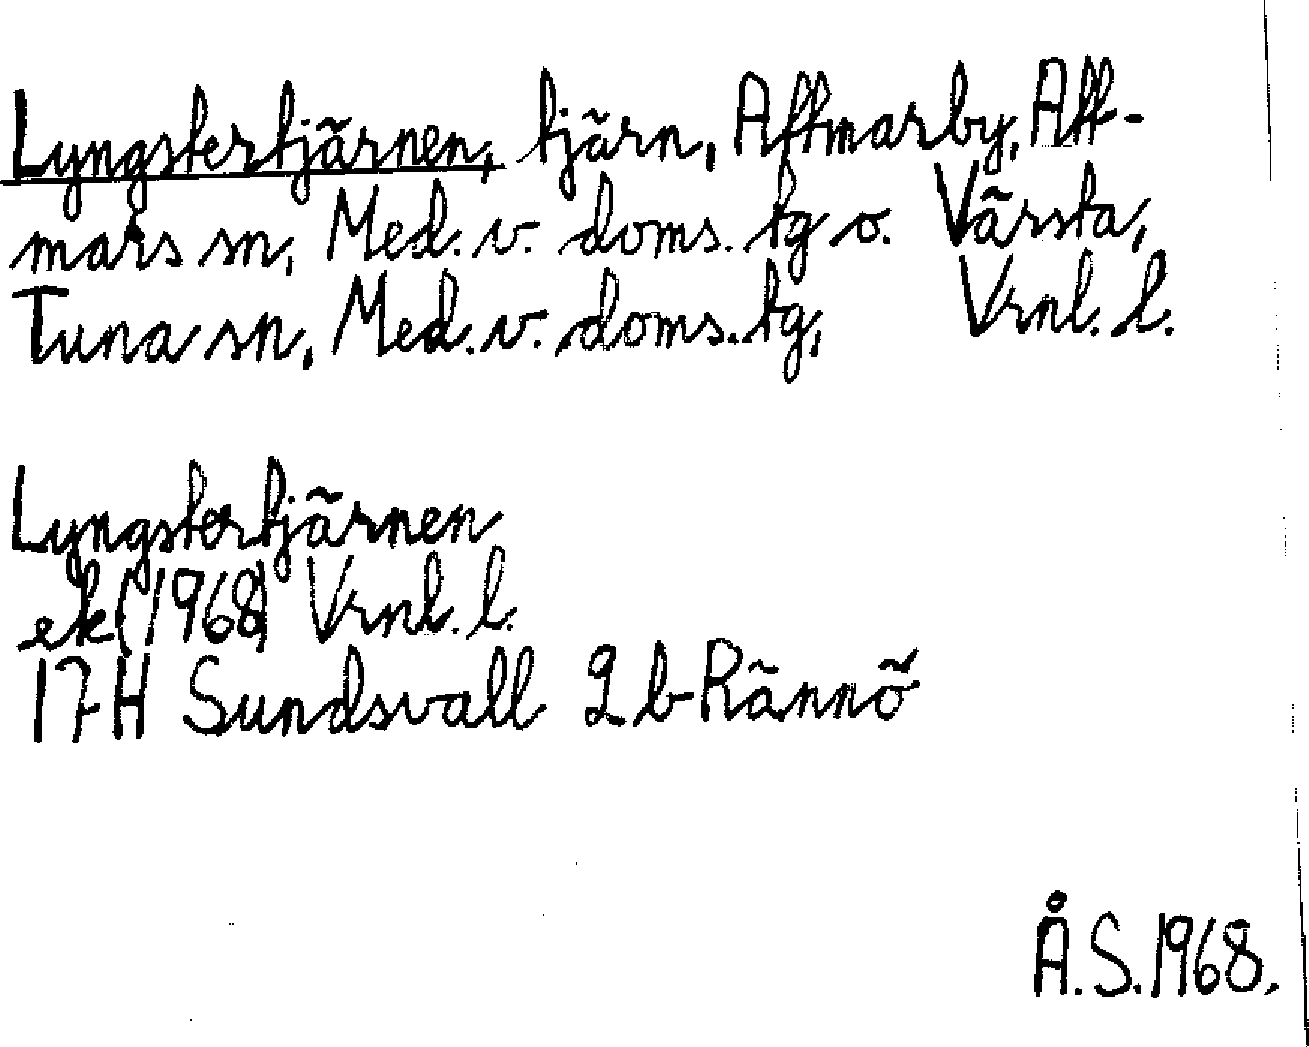 Lyngstertjärnen, tjärn, Attmarby, Att-
mars sn, Med. v. doms. tg o. Värsta,
Tuna sn, Med. v. doms. tg, Vrnl. l.
Lyngstertjärnen
ek (1968) Vrnl. l.
17H Sundsvall 2 b Rännö
Å.S. 1968.